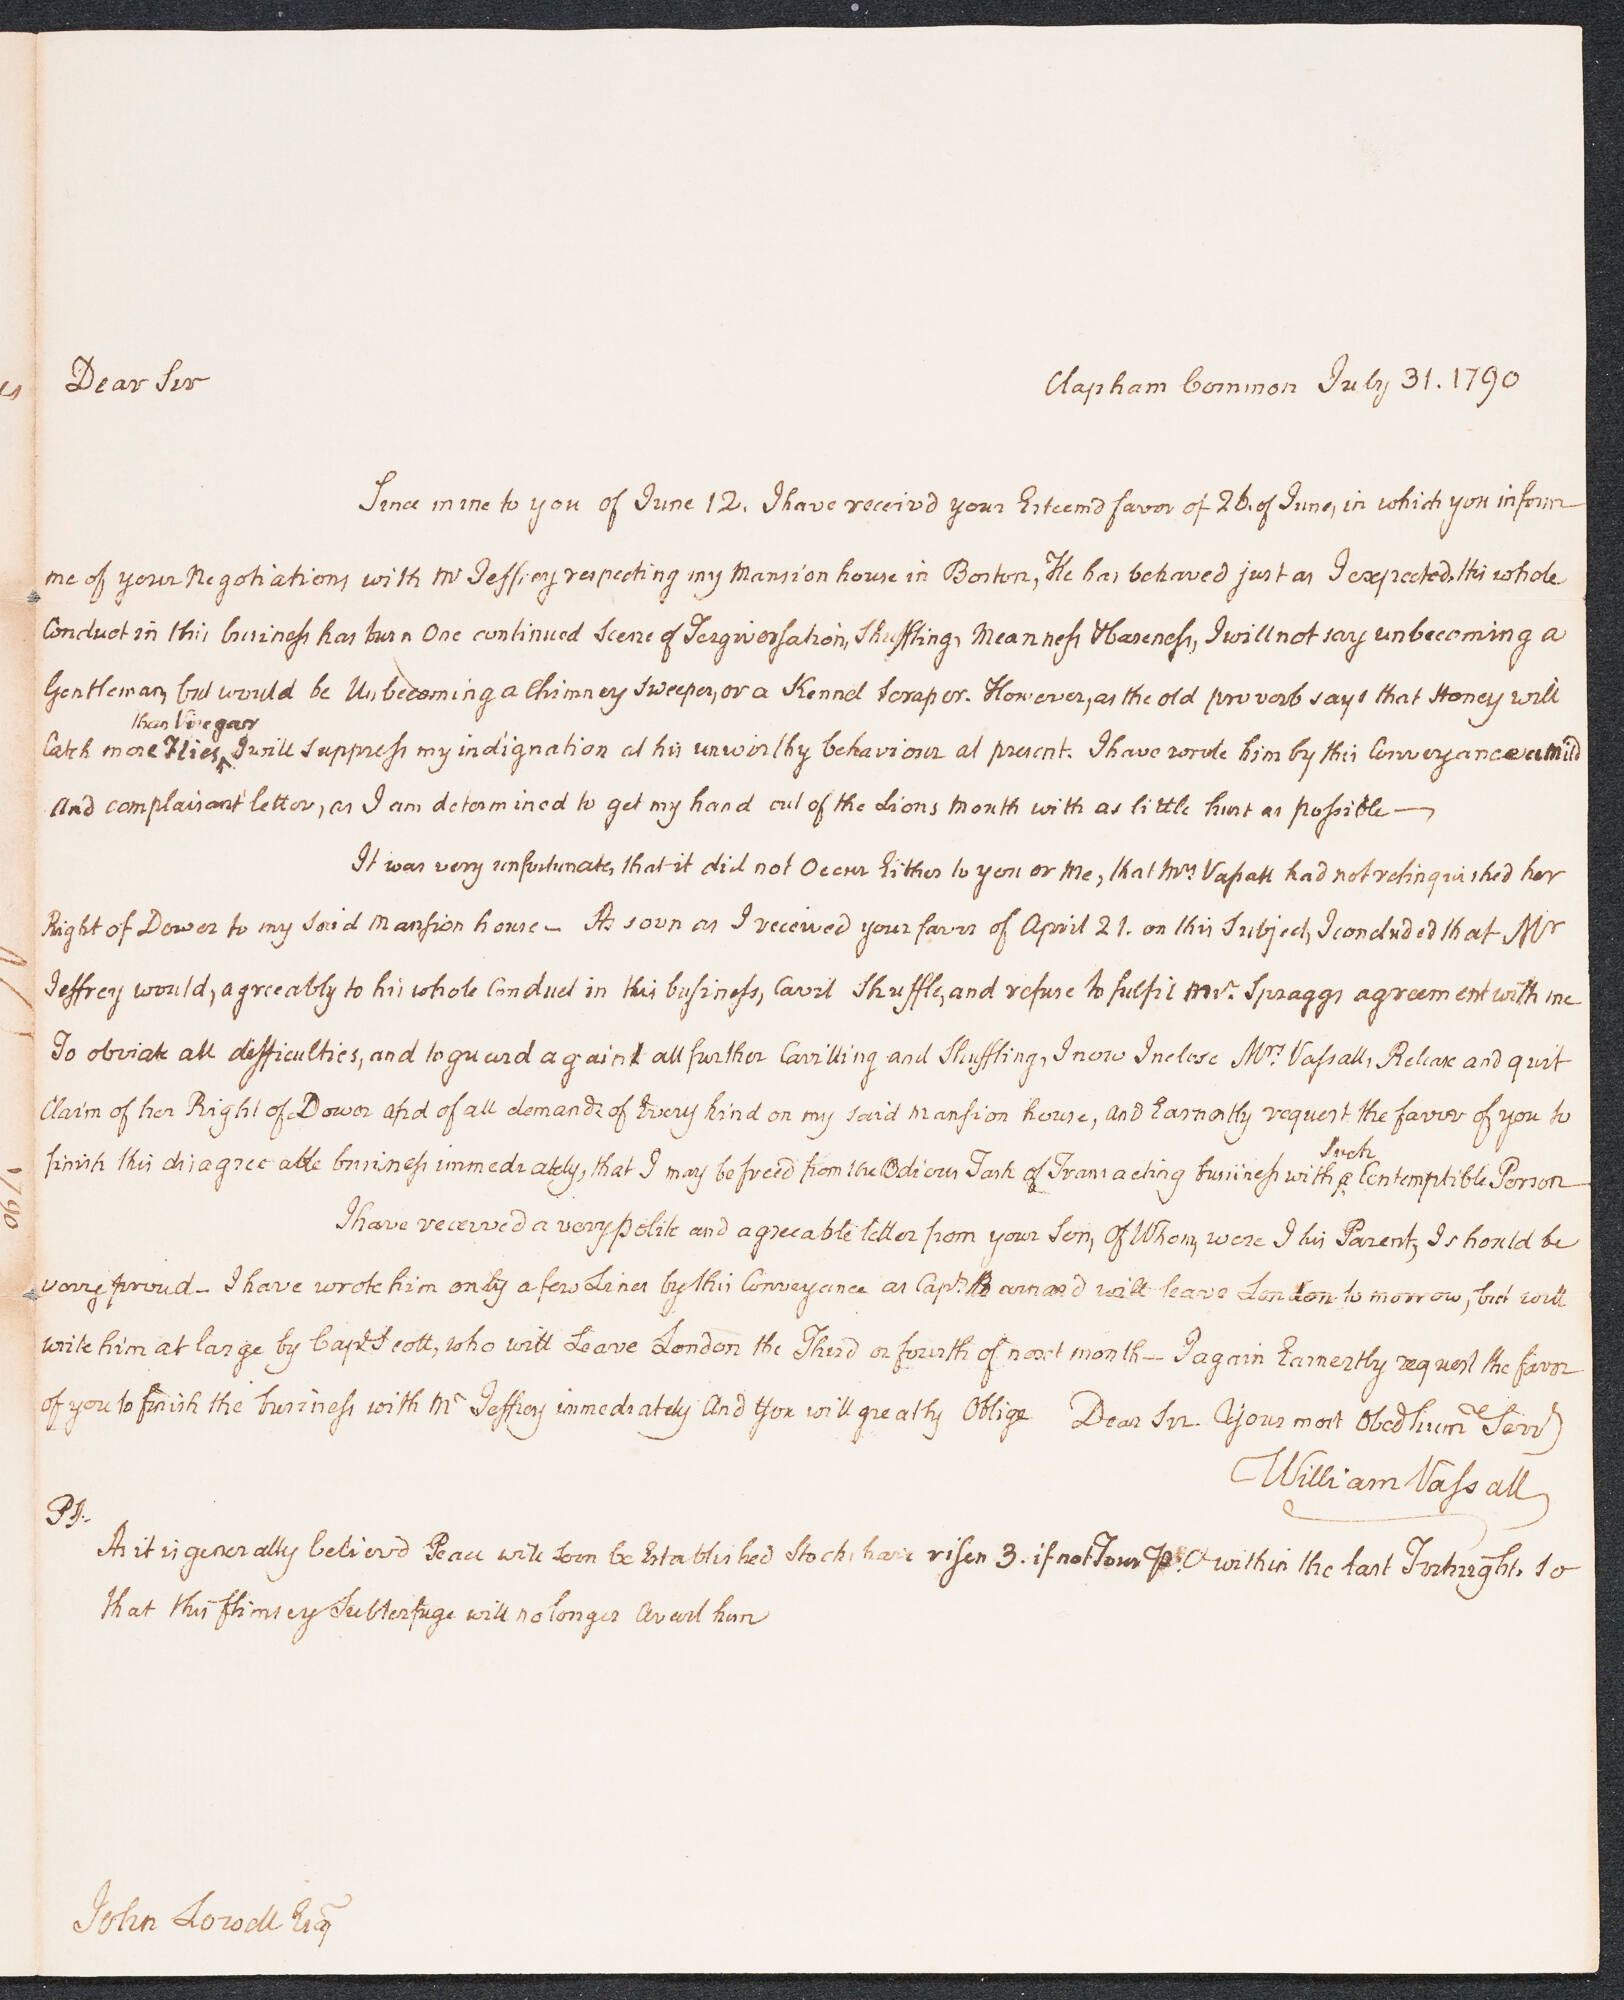 Dear Sir Clapham Common July 31. 1790
Since mine to you of June 12. I have receiv'd your Esteemd favor of 26. of June, in which you inform
me of your Negotiations with Mr Jeffrey respecting my Mansion house in Boston, He has behaved just as I expected, His whole
Conduct in this business has been One continued Scene of Tergiversation, Shuffling, Meanness & Baseness, I will not say unbecoming a
Gentleman, but would be Unbecoming a Chimney Sweeper, or a Kennel Scraper. However, as the old proverb says that Honey will
than Vinegar
Catch more Flies, I will suppress my indignation at his unworthy behaviour at present. I have wrote him by this Conveyance a mild
And complaisant letter, as I am determined to get my hand out of the Lions Mouth with as little hurt as possible —
It was very unfortunate, that it did not Occur Either to you or Me, that Mrs Vassall had not relinquished her
Right of Dower to my said Mansion house — As soon as I received your favor of April 21. on this Subject, I concluded that Mr
Jeffrey would, agreeably to his whole Conduct in this business, Cavil Shuffle, and refuse to fulfil Mr. Spraggs agreement with me
To obviate all difficulties, and to guard against all further Cavilling and Shuffling, I now Inclose Mrs. Vassalls Release and quit
Claim of her Right of Dower and of all demands of Every kind on my said Mansion house, and Earnestly request the favor of you to
Such
finish this disagreeable business immediately, that I may be freed from the Odious Task of Transacting business with a Contemptible Person
I have received a very polite and agreeable letter from your Son, Of Whom, were I his Parent, I should be
very proud — I have wrote him only a few Lines by this Conveyance as Capt. Barnard will leave London to morrow, but will
write him at large by Capt. Scott, who will Leave London the Third or fourth of next month — I again Earnestly request the favor
of you to finish the business with Mr Jeffrey immediately And you will greatly Oblige Dear Sir. Your most Obed humle Servt
William Vassall
PS:.
As it is generally believd Peace will soon be Established Stocks have risen 3. if not Four P. Ct within the last Fortnight. so
that this flimsey Subterfuge will no longer Avail him
John Lowell Esq
1790